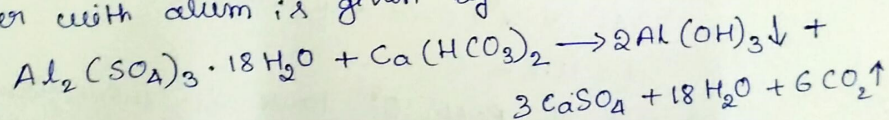 er with alum is given
Al₂(SO₄)₃ · 18H₂O + Ca(HCO₃)₂ → 2Al(OH)₃↓ +
3CaSO₄ + 18H₂O + 6CO₂↑